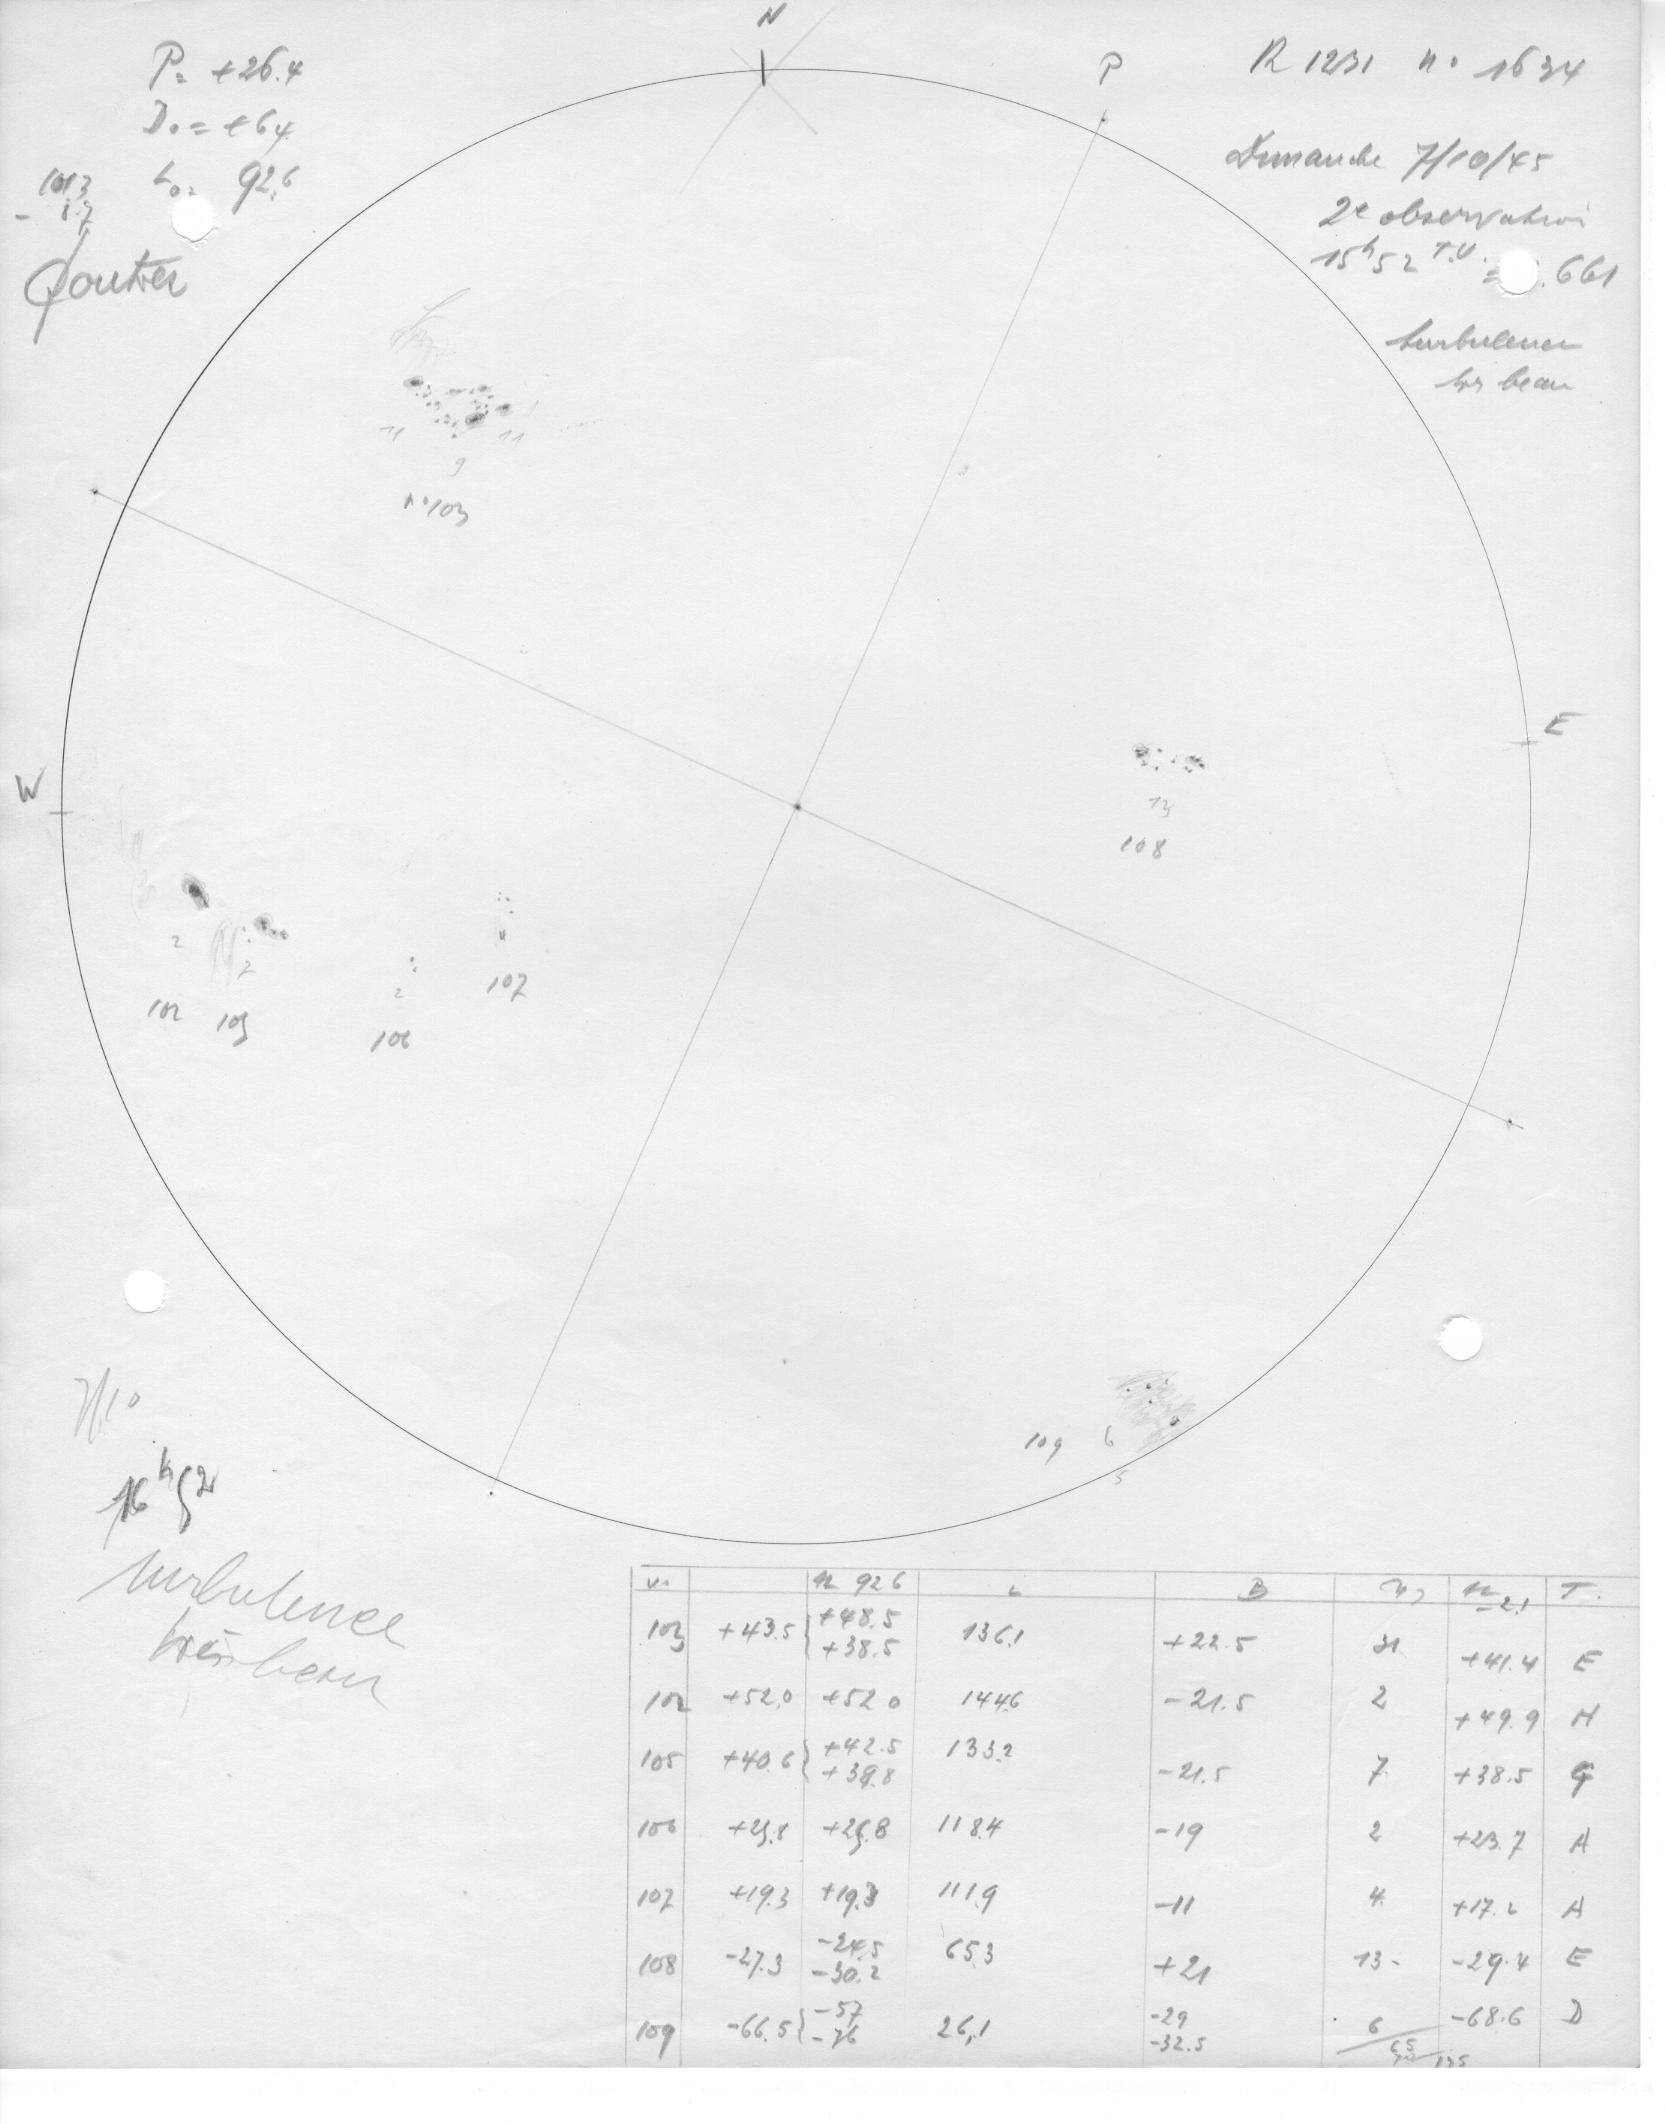 N
P
P= +26.4
D.= +6.4
L0= 92.6
101.3
- 8.7
R 1231 n° 1634
Dimanche 7/10/45
2e observation
15h52 T.U. = .661
turbulence
très beau
11 11
9
n° 103
E
W
13
108
2
102
2
105
2
106
107
109 6
S
7/10
16h52
turbulence
très beau
n° 92.6 L B T.
-2.1
103 +43.5 +48.5 136.1 +22.5 31 +41.4 E
+38.5
102 +52.0 +52.0 144.6 -21.5 2 +49.9 H
105 +40.6 +42.5 133.2 -21.5 7 +38.5 G
+38.8
106 +25.8 +25.8 118.4 -19 2 +23.7 A
107 +19.3 +19.3 111.9 -11 4 +17.2 A
108 -27.3 -24.5 65.3 +21 13 -29.4 E
-30.2
109 -66.5 -57 26.1 -29 6 -68.6 D
-76 -32.5
65
135